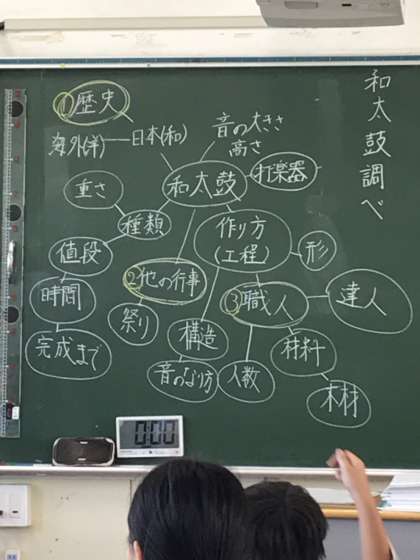 和太鼓調べ
①歴史
海外(洋)
日本(和)
音の大きさ
高さ
和太鼓
打楽器
重さ
種類
作り方
(工程)
形
値段
②他の行事
時間
祭り
③職人
達人
構造
完成まで
材料
音のなり方
人数
木材
0:00